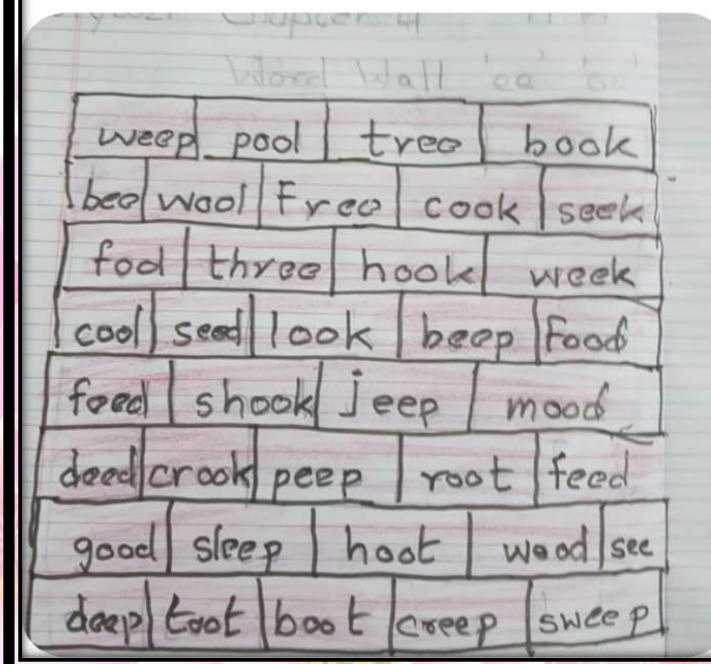 Chapter-4
Word Wall 'ee' 'oo'
weep pool tree book
bee wool Free cook seek
fool three hook week
cool seed look beep Food
feed shook jeep mood
deed crook peep root feed
good sleep hoot wood see
deep toot boot creep sweep